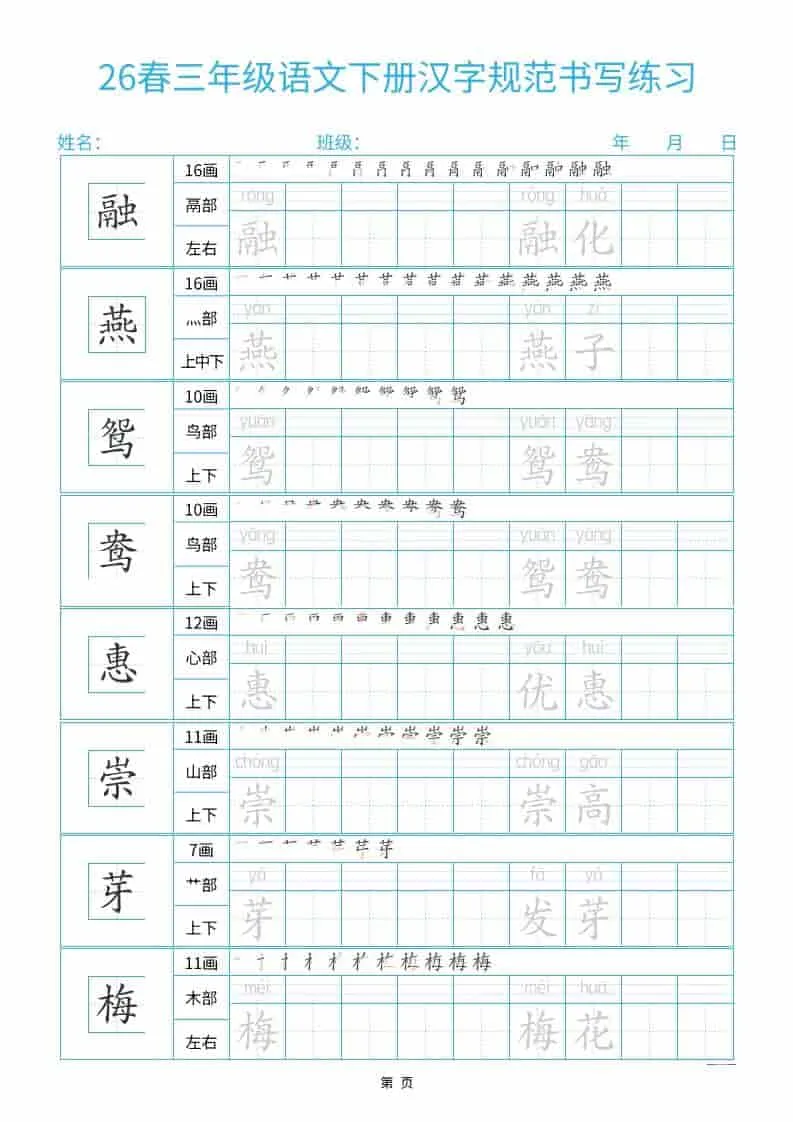 26春三年级语文下册汉字规范书写练习
姓名： 班级： 年 月 日
融 16画
鬲部 róng róng huà
左右 融 融 化
燕 16画
灬部 yàn yàn zi
上中下 燕 燕 子
鸳 10画
鸟部 yuān yuān yāng
上下 鸳 鸳 鸯
鸯 10画
鸟部 yāng yuān yāng
上下 鸯 鸳 鸯
惠 12画
心部 huì yōu huì
上下 惠 优 惠
崇 11画
山部 chóng chóng gāo
上下 崇 崇 高
芽 7画
艹部 yá fā yá
上下 芽 发 芽
梅 11画
木部 méi méi huā
左右 梅 梅 花
第 页